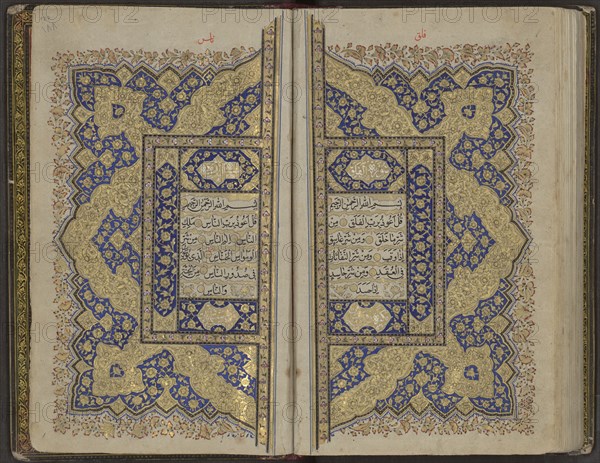 فلق
بسم الله الرحمن الرحيم
قل أعوذ برب الفلق من
شر ما خلق ومن شر غاسق
إذا وقب ومن شر النفاثات
في العقد ومن شر حاسد
إذا حسد
بسم الله الرحمن الرحيم
قل أعوذ برب الناس ملك
الناس إله الناس من شر
الوسواس الخناس الذي يوسوس
في صدور الناس من الجنة
والناس